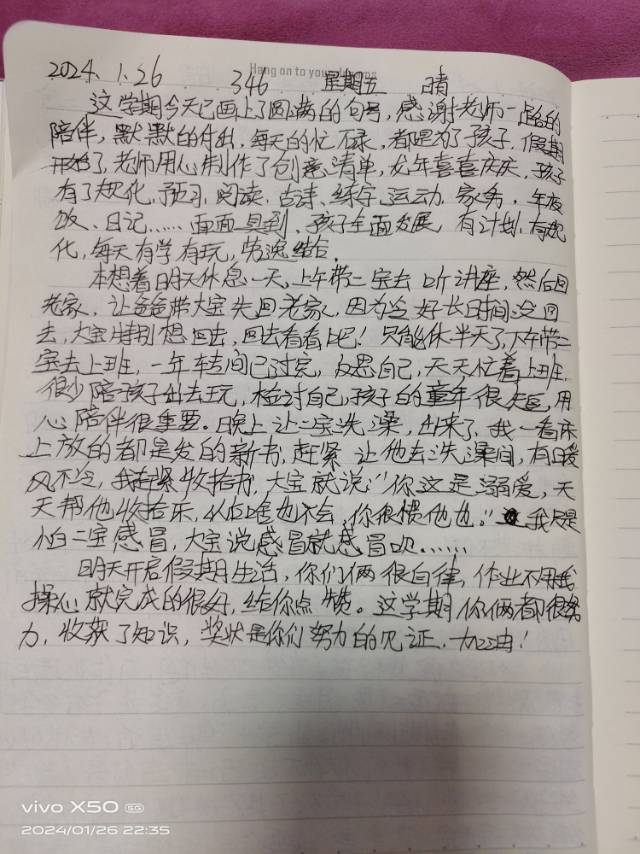 Hang on to your
2024.1.26 346 星期五 晴
这学期今天已画上了圆满的句号,感谢老师一路的
陪伴,默默的付出,每天的忙碌,都是为了孩子.假期
开始了,老师用心制作了创意清单,龙年喜喜庆庆,孩子
有了规化,预习、阅读、古诗、练字、运动、家务、年夜
饭、日记……面面具到.孩子全面发展,有计划,有规
化,每天有学有玩,劳逸结合.
本想着明天休息一天,上午带二宝去听讲座,然后回
老家,让爸爸带大宝先回老家,因为这好长时间没回
去,大宝特别想回去,回去看看吧!只能休半天了,下午带二
宝去上班,一年转间已过完,反思自己,天天忙着上班,
很少陪孩子出去玩,检讨自己,孩子的童年很短,用
心陪伴很重要.晚上让二宝洗澡,出来了,我一看床
上放的都是发的新书,赶紧让他去洗澡间,有暖
风不冷,我赶紧收拾书,大宝就说:"你这是溺爱,天
天帮他收拾东,从啥也不会,你很惯他也."我只是
怕二宝感冒,大宝说感冒就感冒呗……
明天开启假期生活,你们俩很自律,作业不用我
操心就完成的很好,给你点赞。这学期你俩都很努
力,收获了知识,奖状是你们努力的见证.加油!
vivo X50 5G
2024/01/26 22:35